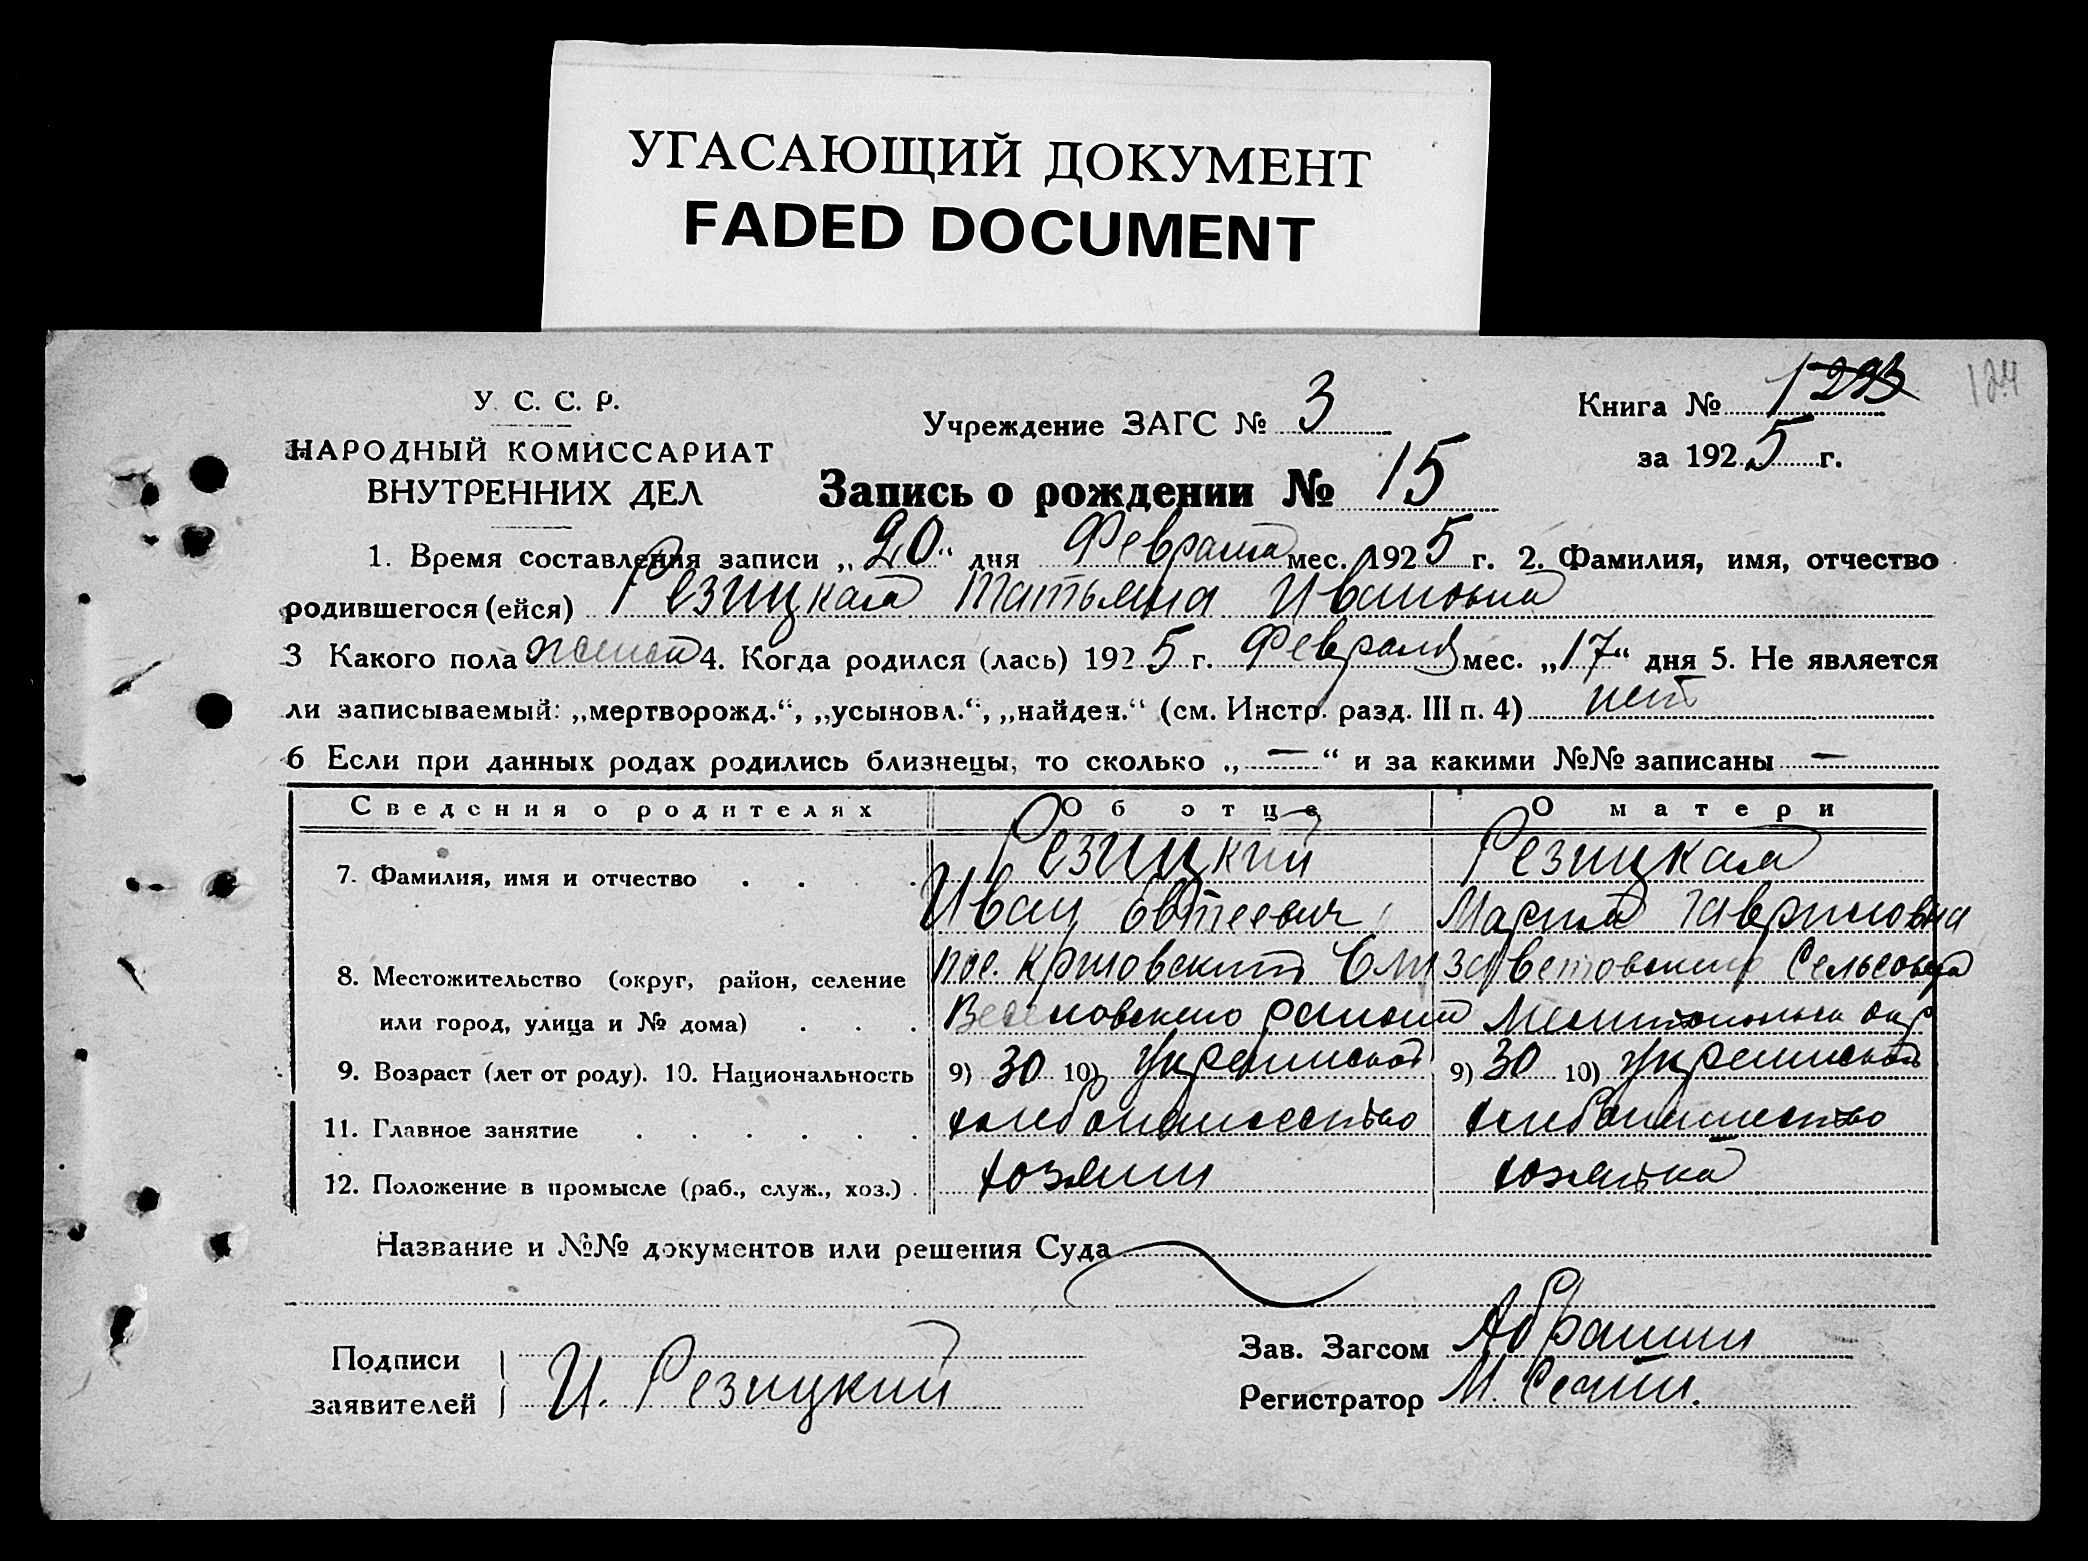 УГАСАЮЩИЙ ДОКУМЕНТ
FADED DOCUMENT
124
У. С. С. Р.
НАРОДНЫЙ КОМИССАРИАТ
ВНУТРЕННИХ ДЕЛ
Учреждение ЗАГС № 3
Книга № 1
за 1925 г.
Запись о рождении № 15
1. Время составления записи „20“ дня Февраля мес. 1925 г. 2. Фамилия, имя, отчество
родившегося (ейся) Резицкая Татьяна Ивановна
3 Какого пола женск 4. Когда родился (лась) 1925 г. Февраля мес. „17“ дня 5. Не является
ли записываемый: „мертворожд.“, „усыновл.“, „найден.“ (см. Инстр. разд. III п. 4) нет
6 Если при данных родах родились близнецы, то сколько „—“ и за какими №№ записаны —
Сведения о родителях Об отце О матери
7. Фамилия, имя и отчество Резицкий Резицкая
Иван Евтеевич Мария Гавриловна
8. Местожительство (округ, район, селение пос. Сельсовета
или город, улица и № дома) Веселовского района
9. Возраст (лет от роду). 10. Национальность 9) 30 10) 9) 30 10)
11. Главное занятие хлебопашество хлебопашество
12. Положение в промысле (раб., служ., хоз.) хозяин хозяйка
Название и №№ документов или решения Суда
Подписи
заявителей И. Резицкий
Зав. Загсом
Регистратор М.